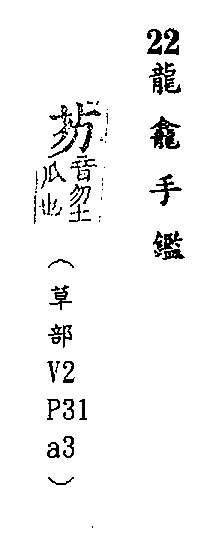 22龍龕手鑑
芴音勿土
瓜也
（草部V2P31a3）